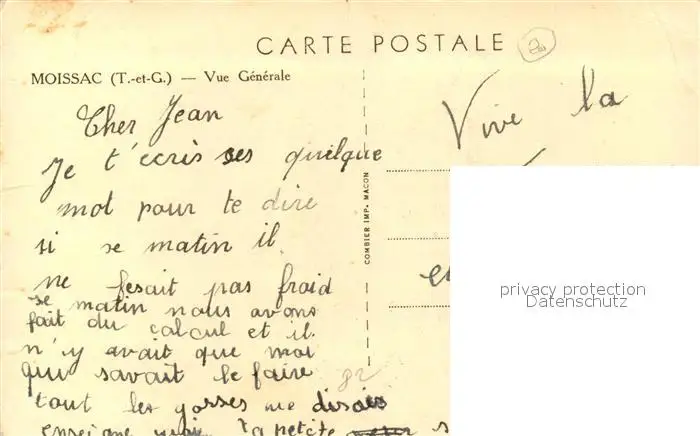 CARTE POSTALE
MOISSAC (T.-et-G.) — Vue Générale
Cher Jean
Je t'écris ses quelque
mot pour te dire
si se matin il
ne fesait pas froid
se matin nous avons
fait du calcul et il
n'y avait que moi
qui savait le faire
tout les gosses me
enseigne moi
COMBIER IMP. MACON
Vive la
privacy protection
Datenschutz
82